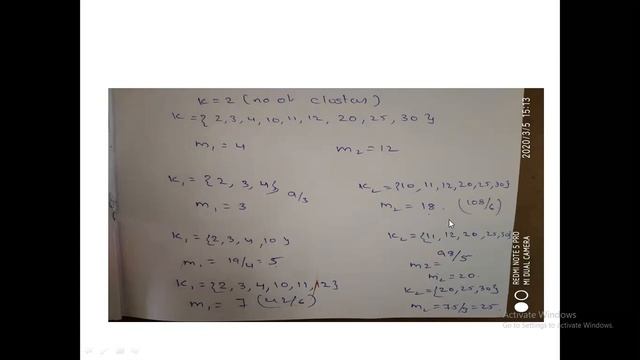 K=2 (no of clusters)
K={2,3,4,10,11,12, 20, 25, 30}
m₁=4 m₂=12
K₁={2,3,4} 9/3 K₂={10,11,12,20,25,30}
m₁=3 m₂=18. (108/6)
K₁={2,3,4,10} K₂={11,12,20,25,30}
m₁=19/4=5 98/5
m₂=
m₂=20.
K₁={2,3,4,10,11,12} K₂={20,25,30}
m₁=7 (42/6) m₂=75/3=25.
REDMI NOTE 5 PRO
MI DUAL CAMERA
2020/3/5 15:13
Activate Windows
Go to Settings to activate Windows.